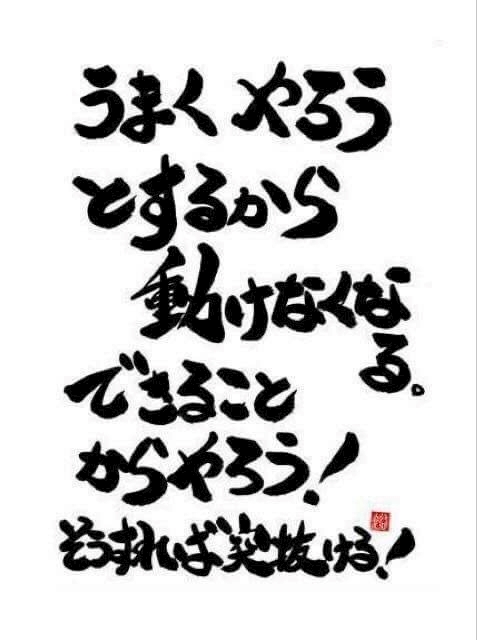 うまくやろう
とするから
動けなくな
る。
できること
からやろう!
そうすれば突抜ける!